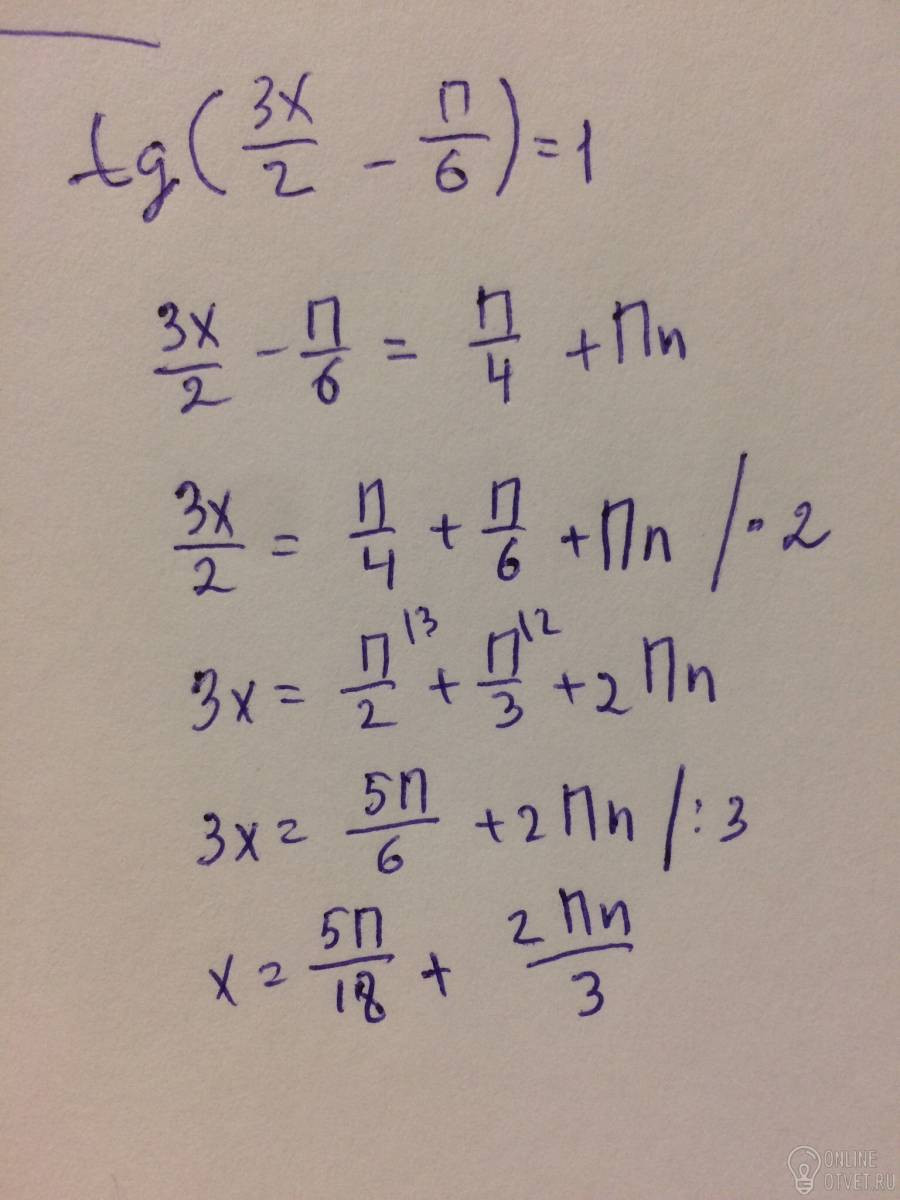 tg(3x/2 - π/6) = 1
3x/2 - π/6 = π/4 + πn
3x/2 = π/4 + π/6 + πn /·2
3x = π/2^{13} + π/3^{12} + 2πn
3x = 5π/6 + 2πn /:3
x = 5π/18 + 2πn/3
ONLINE
OTVET.RU